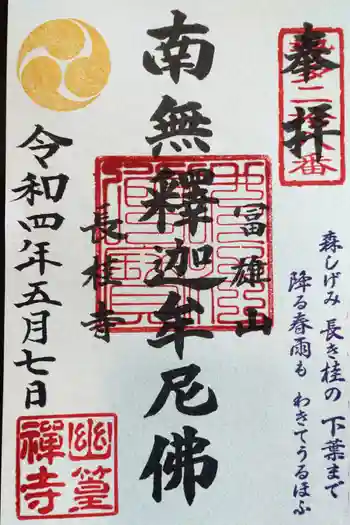 奉拝
森しげみ 長き桂の 下葉まで
降る春雨も わきてうるほふ
南無釋迦牟尼佛
冨雄山
長桂寺
令和四年五月七日
幽篁
禅寺